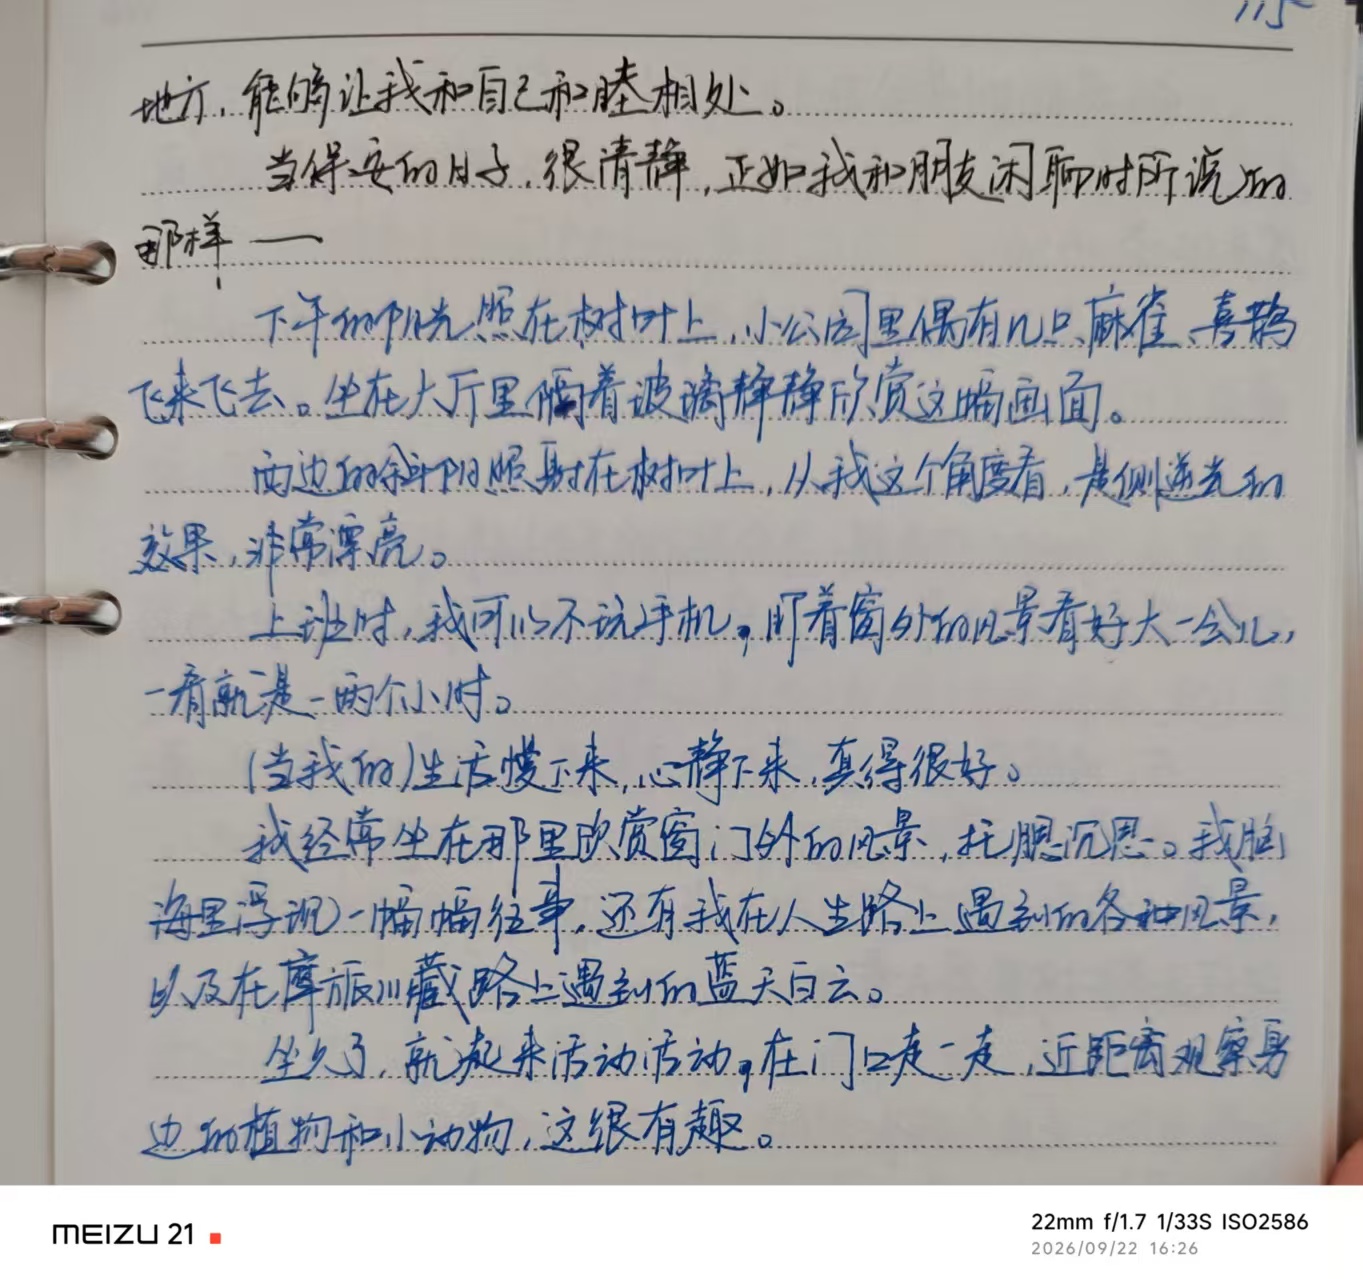 115
地方,能够让我和自己和睦相处。
当保安的日子,很清静,正如我和朋友闲聊时所说的
那样——
下午的阳光照在树叶上,小公园里偶有几只麻雀、喜鹊
飞来飞去。坐在大厅里隔着玻璃静静欣赏这幅画面。
西边的斜阳照射在树叶上,从我这个角度看,是侧逆光的
效果,非常漂亮。
上班时,我可以不玩手机,盯着窗外的风景看好大一会儿,
一看就是一两个小时。
(当我的)生活慢下来,心静下来,真得很好。
我经常坐在那里欣赏窗门外的风景,托腮沉思。我脑
海里浮现一幅幅往事,还有我在人生路上遇到的各种风景,
以及在摩旅川藏路上遇到的蓝天白云。
坐久了,就起来活动活动,在门口走一走,近距离观察身
边的植物和小动物,这很有趣。
MEIZU 21
22mm f/1.7 1/33S ISO2586
2026/09/22 16:26